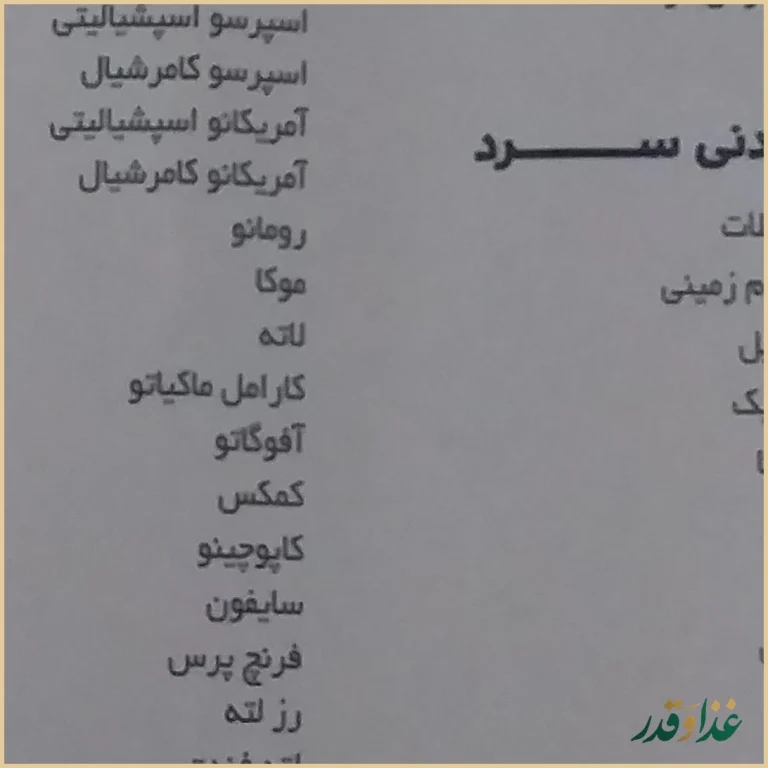 دنی سرد
م زمینی
اسپرسو اسپشیالیتی
اسپرسو کامرشیال
آمریکانو اسپشیالیتی
آمریکانو کامرشیال
رومانو
موکا
لاته
کارامل ماکیاتو
آفوگاتو
کمکس
کاپوچینو
سایفون
فرنچ پرس
رز لته
غذا و قدر